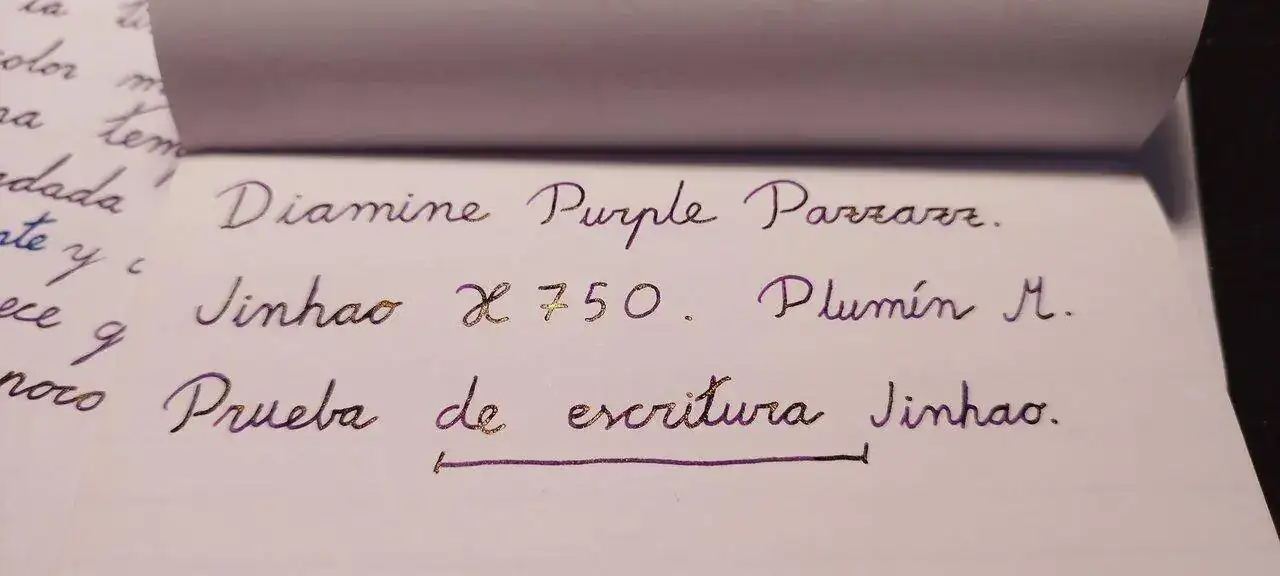 la
color
tem
dada
y
ece q
poco
Diamine Purple Pazzazz.
Jinhao X750. Plumín M.
Prueba de escritura Jinhao.